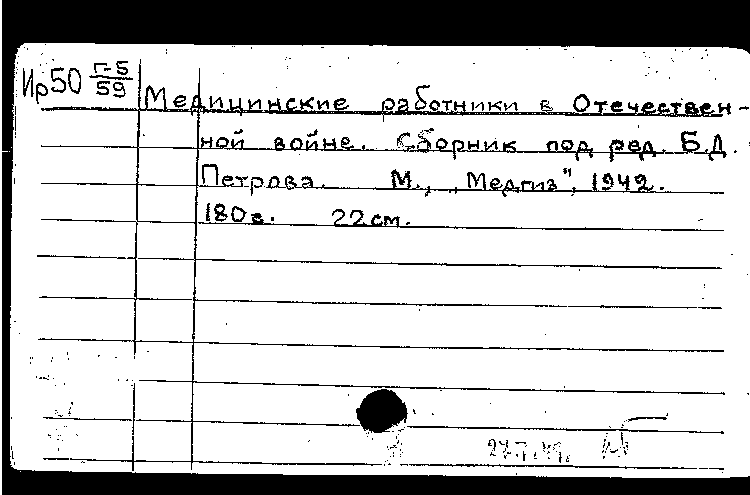 Ир50 Г-5/59
Медицинские работники в Отечествен-
ной войне. Сборник под ред. Б.Д.
Петрова. М., „Медгиз", 1942.
180 с. 22 см.